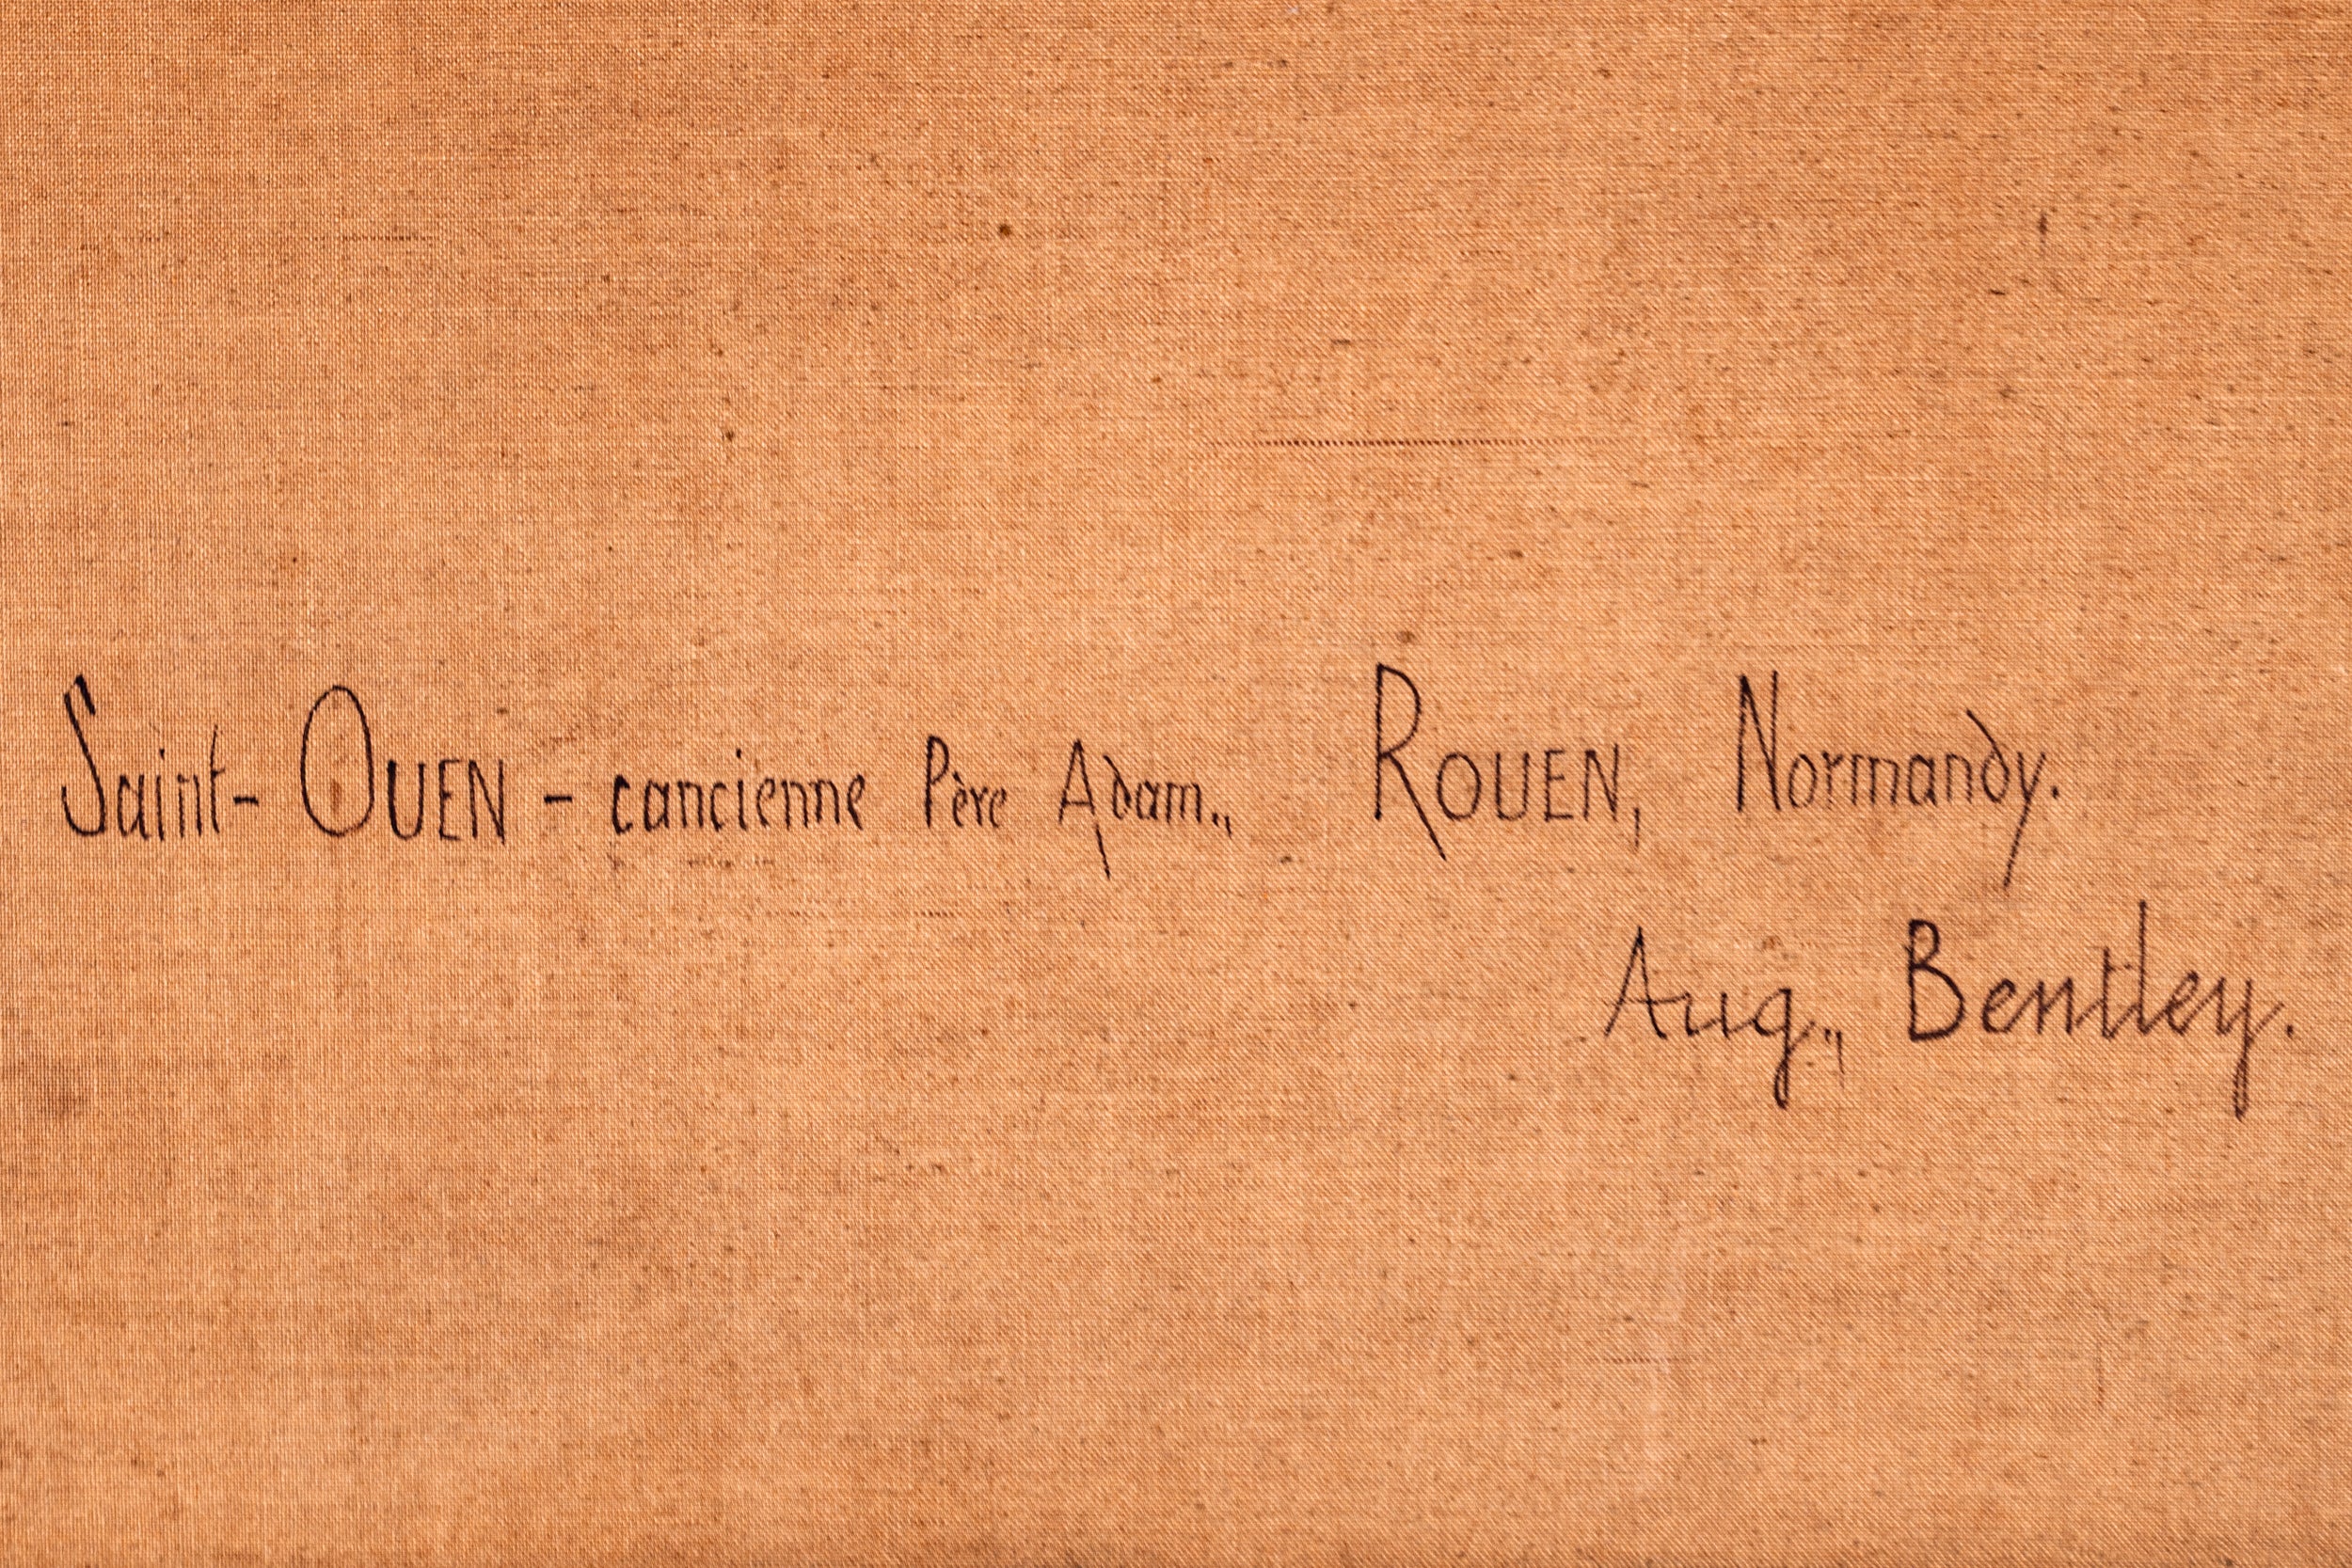 Saint-OUEN - cancienne Père Adam., ROUEN, Normandy.
Aug., Bentley.